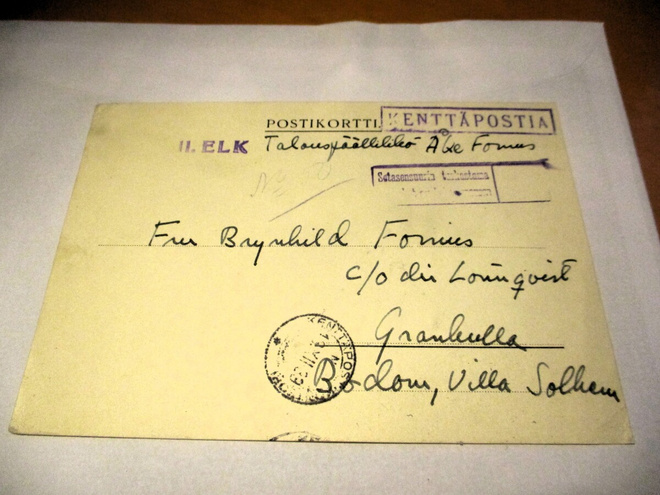 POSTIKORTTI KENTTÄPOSTIA
II. ELK Talouspäällikkö Åke Fornius
No
Sotasensuurin tarkastama
Fru Brynhild Fornius
c/o dir Lönnqvist
Grankulla
Bodom, Villa Solhem
KENTTÄPOSTI
XII.39